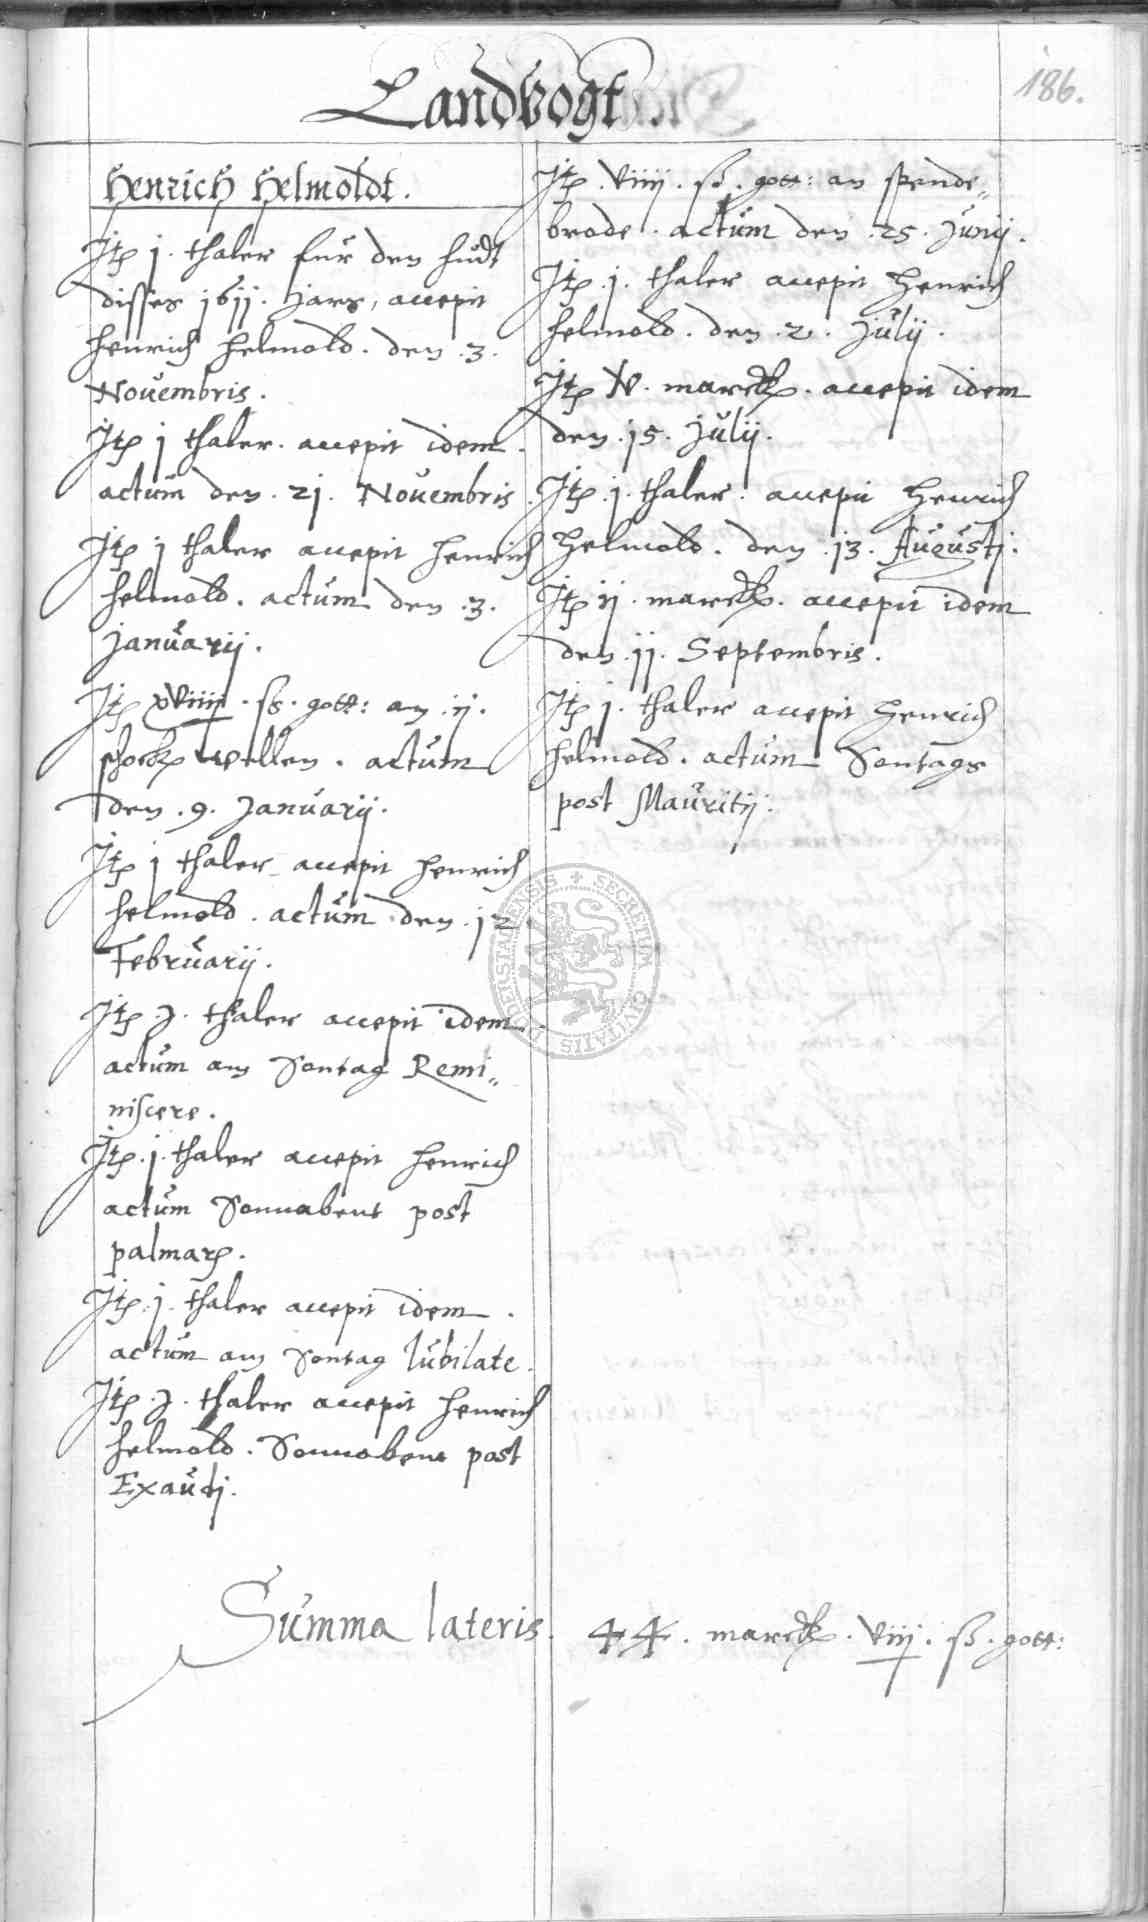 186.
Landvogt
Henrich Helmoldt.
Itē j. thaler fur den hudt
disses 1611. jars, accepit
Henrich Helmold. den .3.
Novembris.
Itē j thaler. accepit idem.
actum den. 21. Novembris
Itē j thaler accepit Henrich
Helmold. actum den .3.
Januarij.
Itē xviiij. ß. gott: an .ij.
schock wellen. actum
den .9. Januarij.
Itē j thaler accepit Henrich
Helmold. actum den .12.
Februarij.
Itē .j. thaler accepit idem
actum am Sontag Remi„
niscere.
Itē .j. thaler accepit Henrich
actum Sonnabent post
palmarū.
Itē .j. thaler accepit idem.
actum am Sontag Iubilate.
Itē .j. thaler accepit Henrich
Helmold. Sonnabent post
Exaudj.
Itē . viiij. ß. gott: an spende„
brode. actum den .25. Junij.
Itē .j. thaler accepit Henrich
Helmold. den .2. Julij.
Itē V. marck. accepit idem
den .15. Julij.
Itē .j. thaler. accepit Henrich
Helmold. den .13. Augustj.
Itē ij. marck. accepit idem
den .11. Septembris.
Itē j. thaler accepit Henrich
Helmold. actum Sontags
post Mauritij.
SECRETUM CIVITATIS DUDERSTADENSIS
Summa lateris. 44. marck. viij. ß. gott: